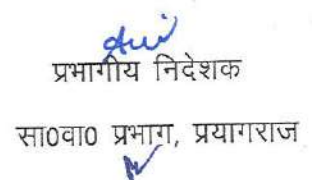 प्रभागीय निदेशक
सा0वा0 प्रभाग, प्रयागराज